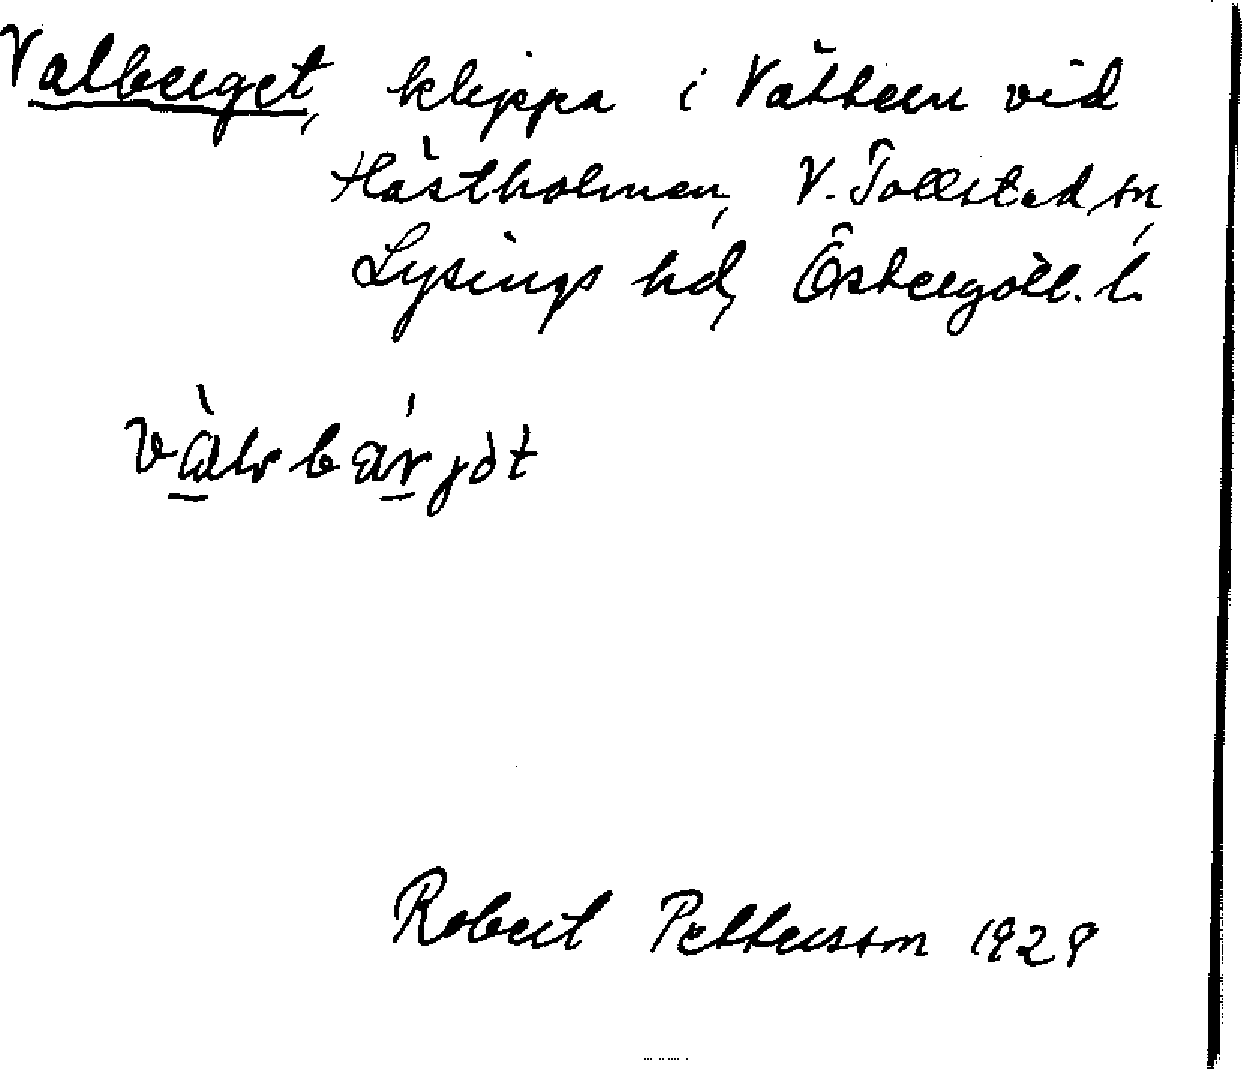 Valberget, klippa i Vättern vid
Hästholmen, V. Tollstad sn,
Lysings hd, Östergötl. l.
Robert Pettersson 1928